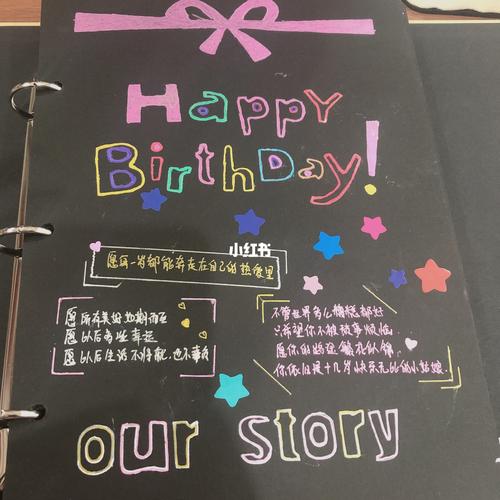 Happy
BirthDay!
小红书
愿每一岁都能奔走在自己的热爱里
愿所有美好如期而至
愿以后多些幸运
愿以后生活不将就,也不辜负
不管世界多么糟糕都好
只希望你不被琐事烦恼
愿你的路途繁花似锦
你依旧是十几岁快乐无比的小姑娘
our story